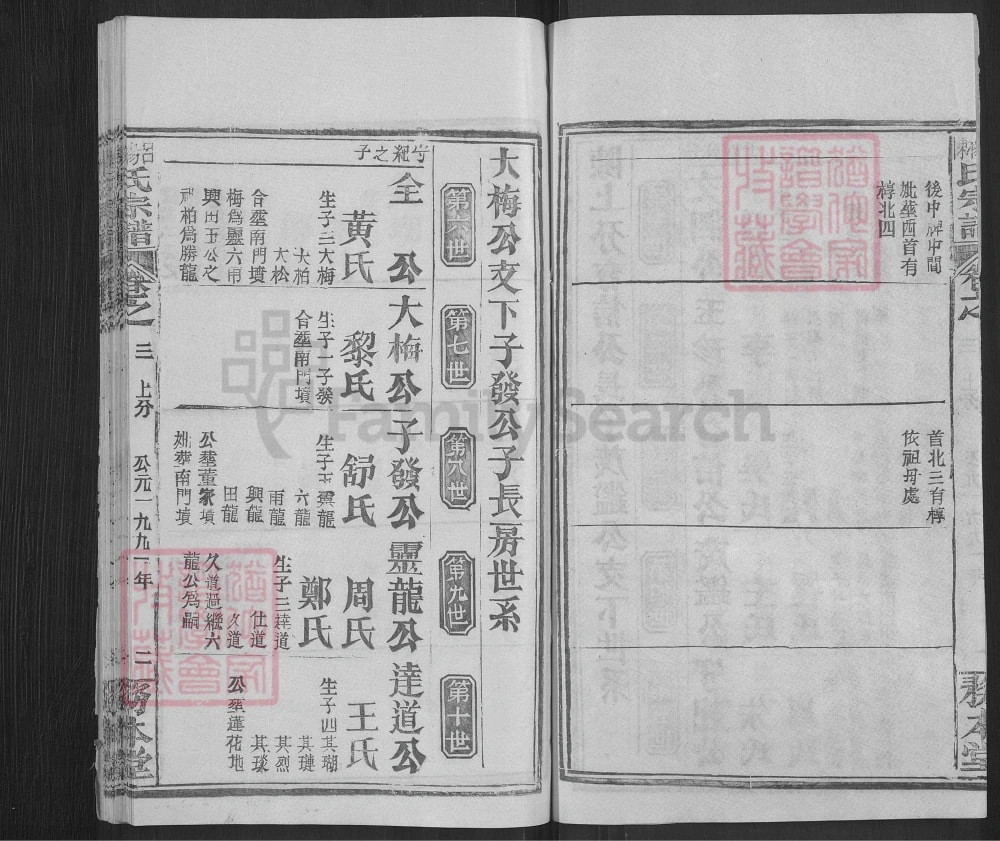 後中
中間
妣塟西首有
椁北四
首北三有椁
依祖母處
氏宗譜
卷之
務本堂
大梅公支下子發公子長房世系
第六世
第七世
第八世
第九世
第十世
紀之子
全公
黃氏
生子三大梅
大柏
大松
合塟南門墳
梅為靈六雨
興田五公之
柏為勝龍
大梅公
黎氏
生子一子發
合塟南門墳
子發公
舒氏
生子五靈龍
六龍
雨龍
興龍
田龍
公塟董家墳
妣塟南門墳
靈龍公
周氏
鄭氏
生子三達道
仕道
久道
久道過繼六
龍公為嗣
達道公
王氏
生子四其瑚
其璉
其烈
其琰
公塟蓮花地
氏宗譜
卷之一
三
上分
公元一九九一年
二
務本堂
FamilySearch